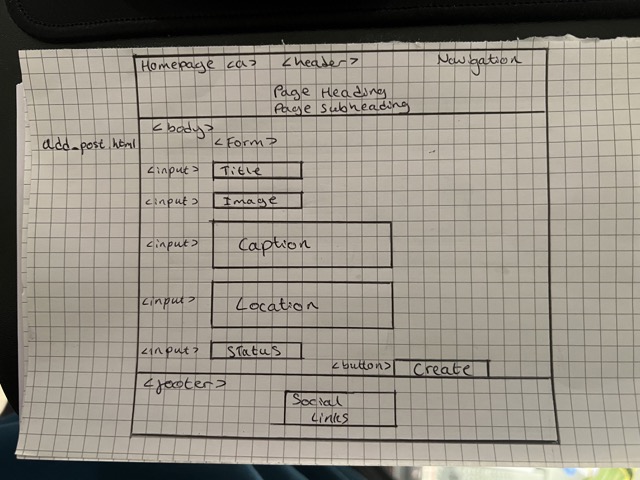 Homepage <a> <header> Navigation
Page Heading
Page Subheading
<body>
add_post.html
<Form>
<input> Title
<input> Image
<input> Caption
<input> Location
<input> Status
<button> Create
<footer>
Social
Links